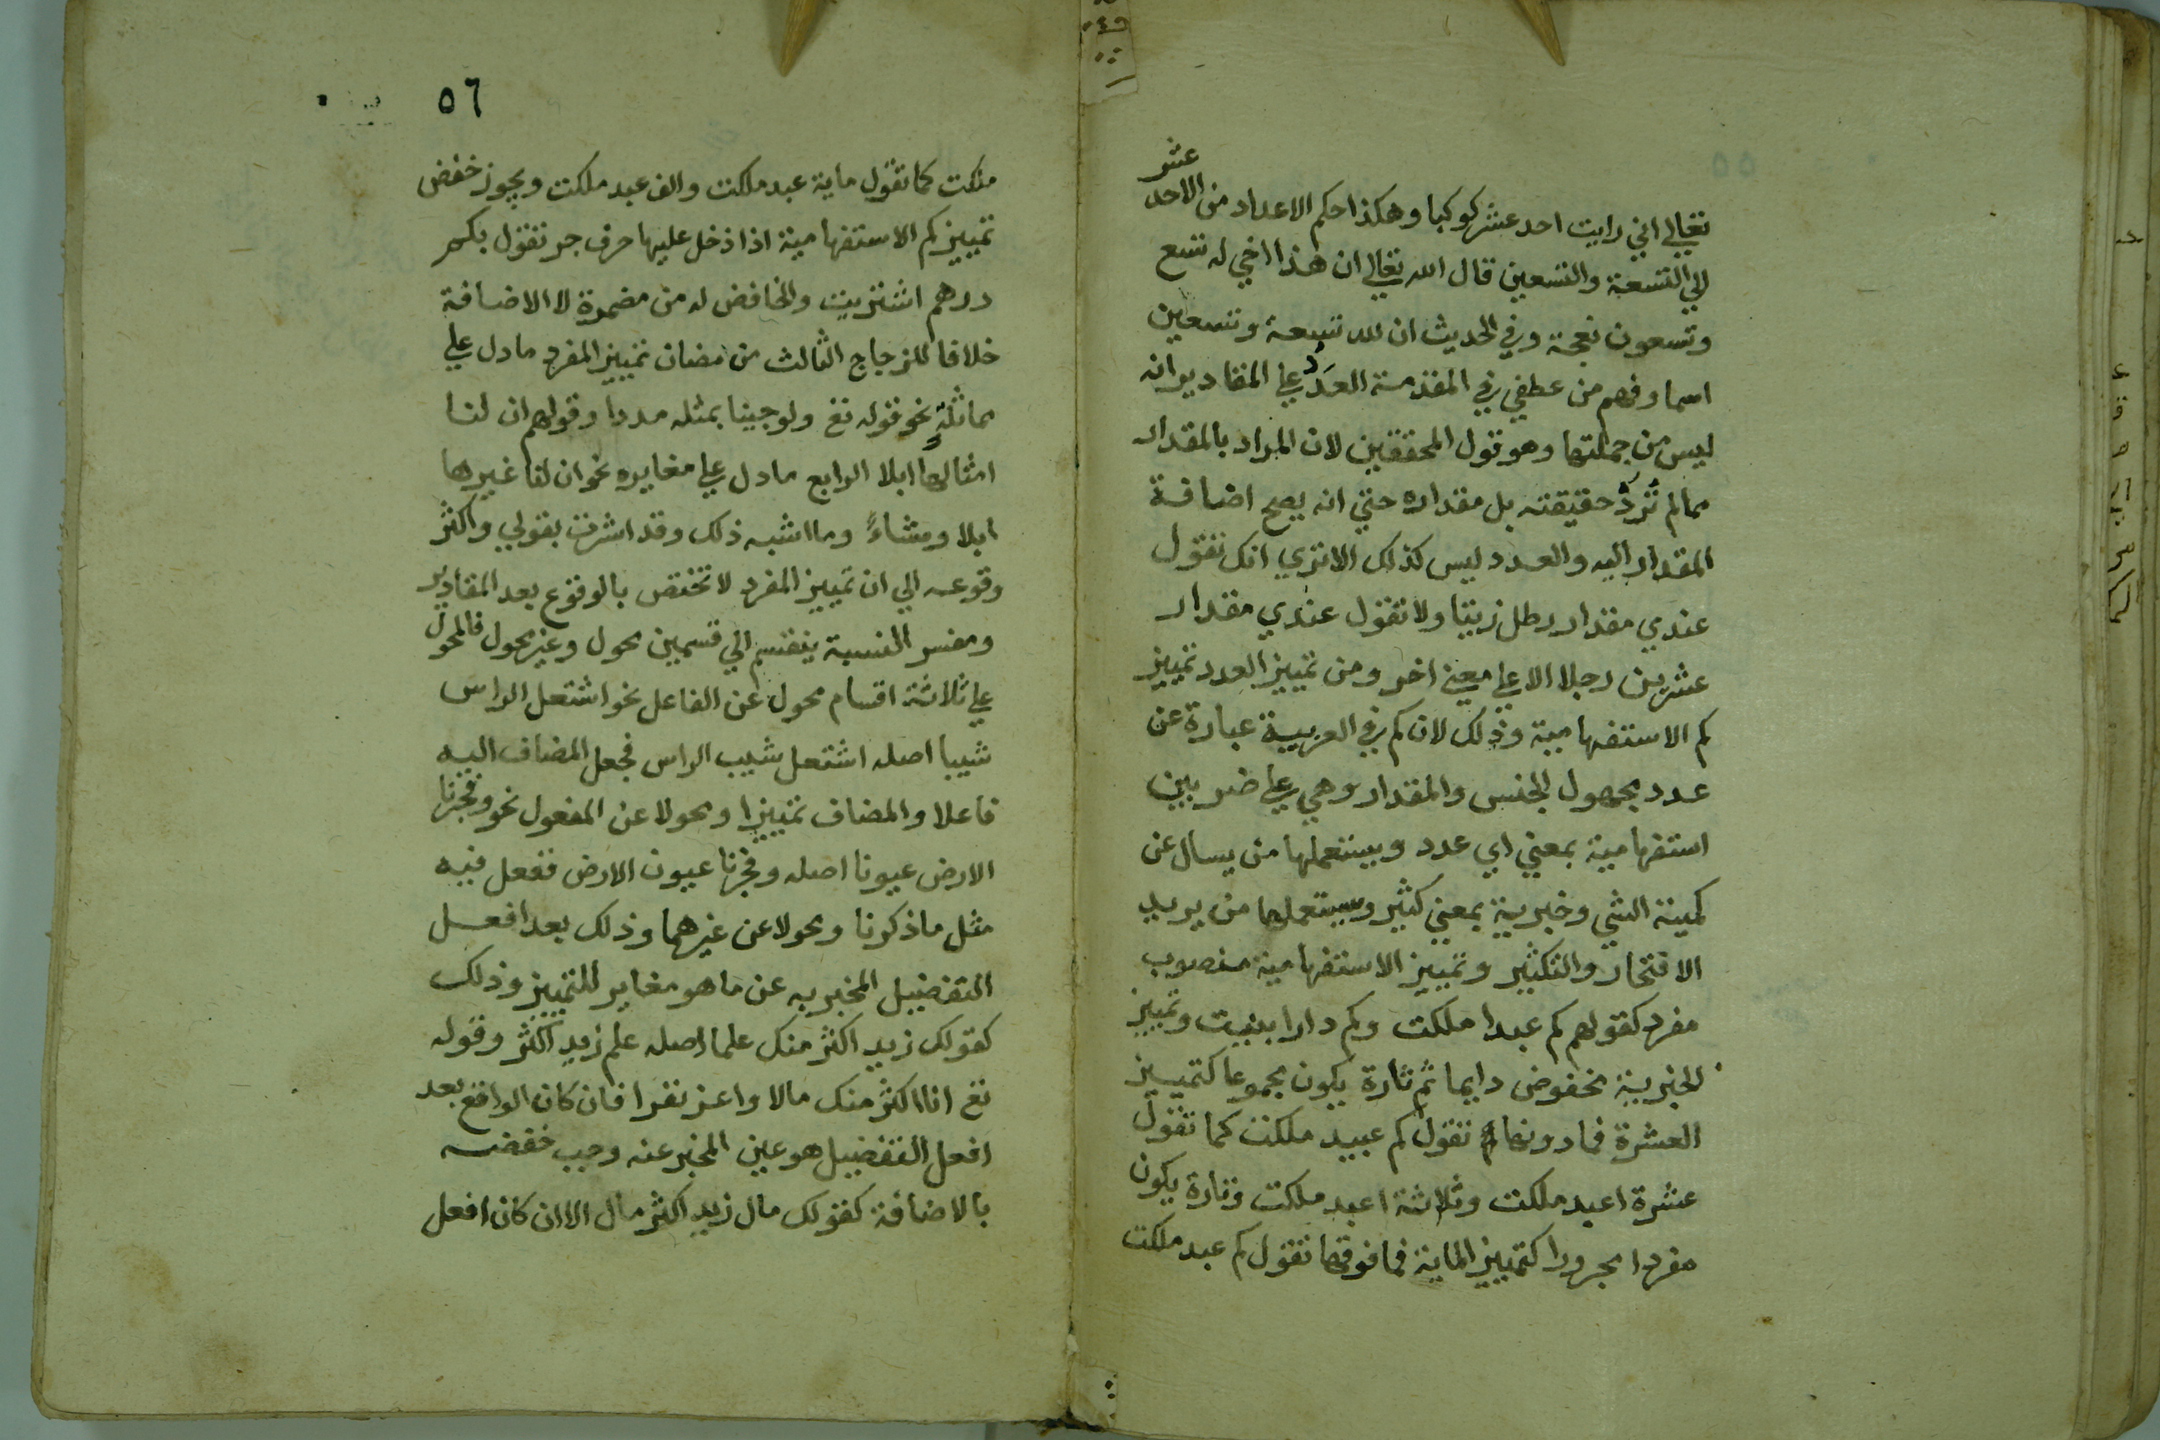 تعالي اني رايت احد عشر كوكبا وهكذا حكم الاعداد من الاحد عشر
الي التسعة والتسعين قال الله تعالي ان هذا اخي له تسع
وتسعون نعجة وفي الحديث ان لله تسعة وتسعين
اسما وفهم من عطفي في المقدمة العدد علي المقادير انه
ليس من جملتها وهو قول المحققين لان المراد بالمقدار
مما لم ترد حقيقته بل مقداره حتي انه يصح اضافة
المقدار اليه والعدد ليس كذلك الا تري انك تقول
عندي مقدار رطل زيتا ولا تقول عندي مقدار
عشرين رجلا الا علي معني اخر ومن تمييز العدد تمييز
كم الاستفهامية وذلك لان كم في العربية عبارة عن
عدد مجهول الجنس والمقدار وهي علي ضربين
استفهامية بمعني اي عدد ويستعملها من يسال عن
كمية الشي وخبرية بمعني كثير ويستعملها من يريد
الافتخار والتكثير وتمييز الاستفهامية منصوب
مفرد كقولهم كم عبدا ملكت وكم دارا بنيت وتمييز
الخبرية مخفوض دايما ثم تارة يكون مجموعا كتمييز
العشرة فما دونها تقول كم عبيد ملكت كما تقول
عشرة اعبد ملكت وثلاثة اعبد ملكت وتارة يكون
مفردا مجرورا كتمييز الماية فما فوقها تقول كم عبد ملكت
٥٦
ملكت كما تقول ماية عبد ملكت والف عبد ملكت ويجوز خفض
تمييز كم الاستفهامية اذا دخل عليها حرف جر تقول بكم
درهم اشتريت والخافض له من مضمرة لا الاضافة
خلافا للزجاج الثالث من مضان تمييز المفرد ما دل علي
مماثلة نحو قوله تع ولو جينا بمثله مددا وقولهم ان لنا
امثالها ابلا الرابع ما دل علي مغايره نحو ان لنا غيرها
ابلا وشاءً وما اشبه ذلك وقد اشرت بقولي واكثر
وقوعه الي ان تمييز المفرد لا تختص بالوقوع بعد المقادير
ومفسر النسبة ينقسم الي قسمين محول وغير محول فالمحول
علي ثلاثة اقسام محول عن الفاعل نحو اشتعل الراس
شيبا اصله اشتعل شيب الراس فجعل المضاف اليه
فاعلا والمضاف تمييزا ومحولا عن المفعول نحو وفجرنا
الارض عيونا اصله وفجرنا عيون الارض ففعل فيه
مثل ما ذكرنا ومحولا عن غيرهما وذلك بعد افعل
التفضيل المخبر به عن ما هو مغاير للتمييز وذلك
كقولك زيد اكثر منك علما اصله علم زيد اكثر وقوله
تع انا اكثر منك مالا واعز نفرا فان كان الواقع بعد
افعل التفضيل هو عين المخبر عنه وجب خفضه
بالاضافة كقولك مال زيد اكثر مال الا ان كان افعل